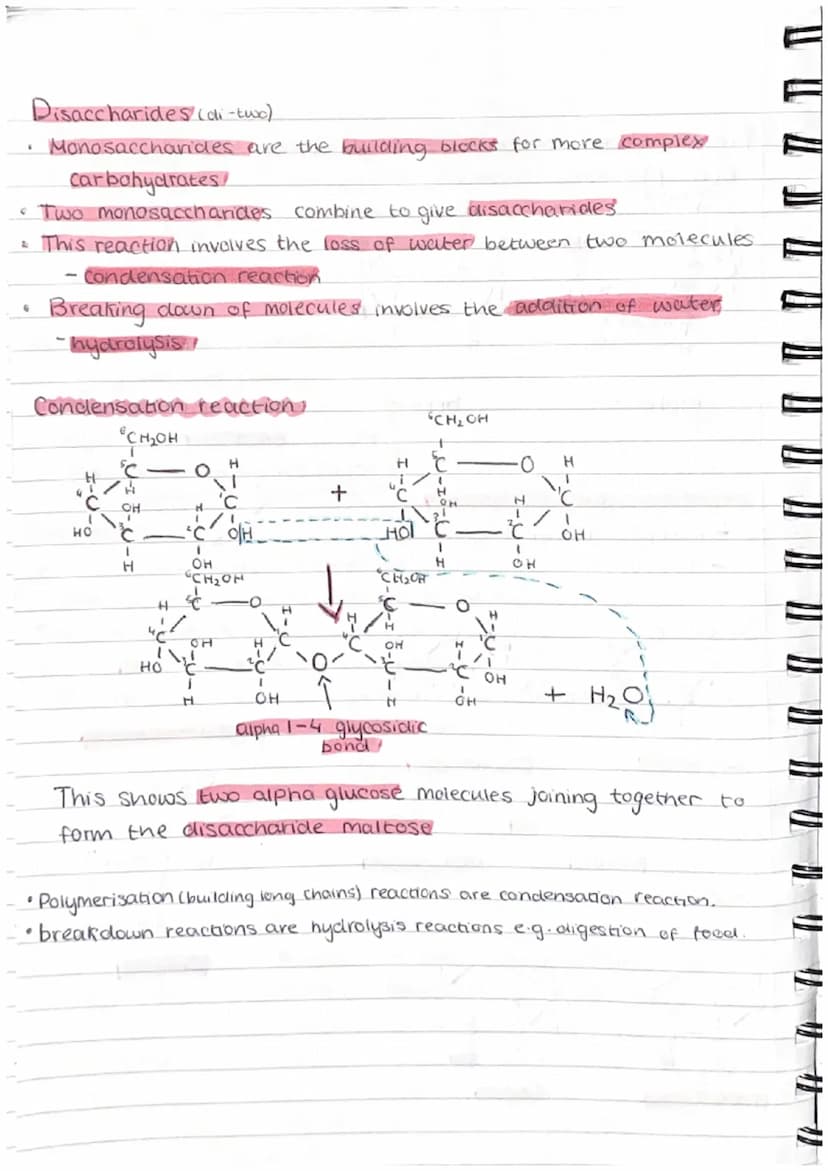 Disaccharides (di-two)
• Monosaccharides are the building blocks for more complex
carbohydrates
• Two monosaccharides combine to give disaccharides
• This reaction involves the loss of water between two molecules
- condensation reaction
• Breaking down of molecules involves the addition of water
- hydrolysis
Condensation reaction
⁶CH₂OH ⁶CH₂OH
H ⁵C — O H + H ⁵C — O H
⁴C H ¹C ⁴C H ¹C
HO OH ³C — ²C H OH HO OH ³C — ²C H OH
H OH H OH
⁶CH₂OH ⁶CH₂OH
H ⁵C — O H H ⁵C — O H
⁴C OH H ¹C ⁴C H OH H ¹C
HO ³C — ²C O ³C — ²C OH
H OH H OH + H₂O
alpha 1-4 glycosidic
bond
This shows two alpha glucose molecules joining together to
form the disaccharide maltose
• Polymerisation (building long chains) reactions are condensation reaction.
• breakdown reactions are hydrolysis reactions e.g. digestion of food.